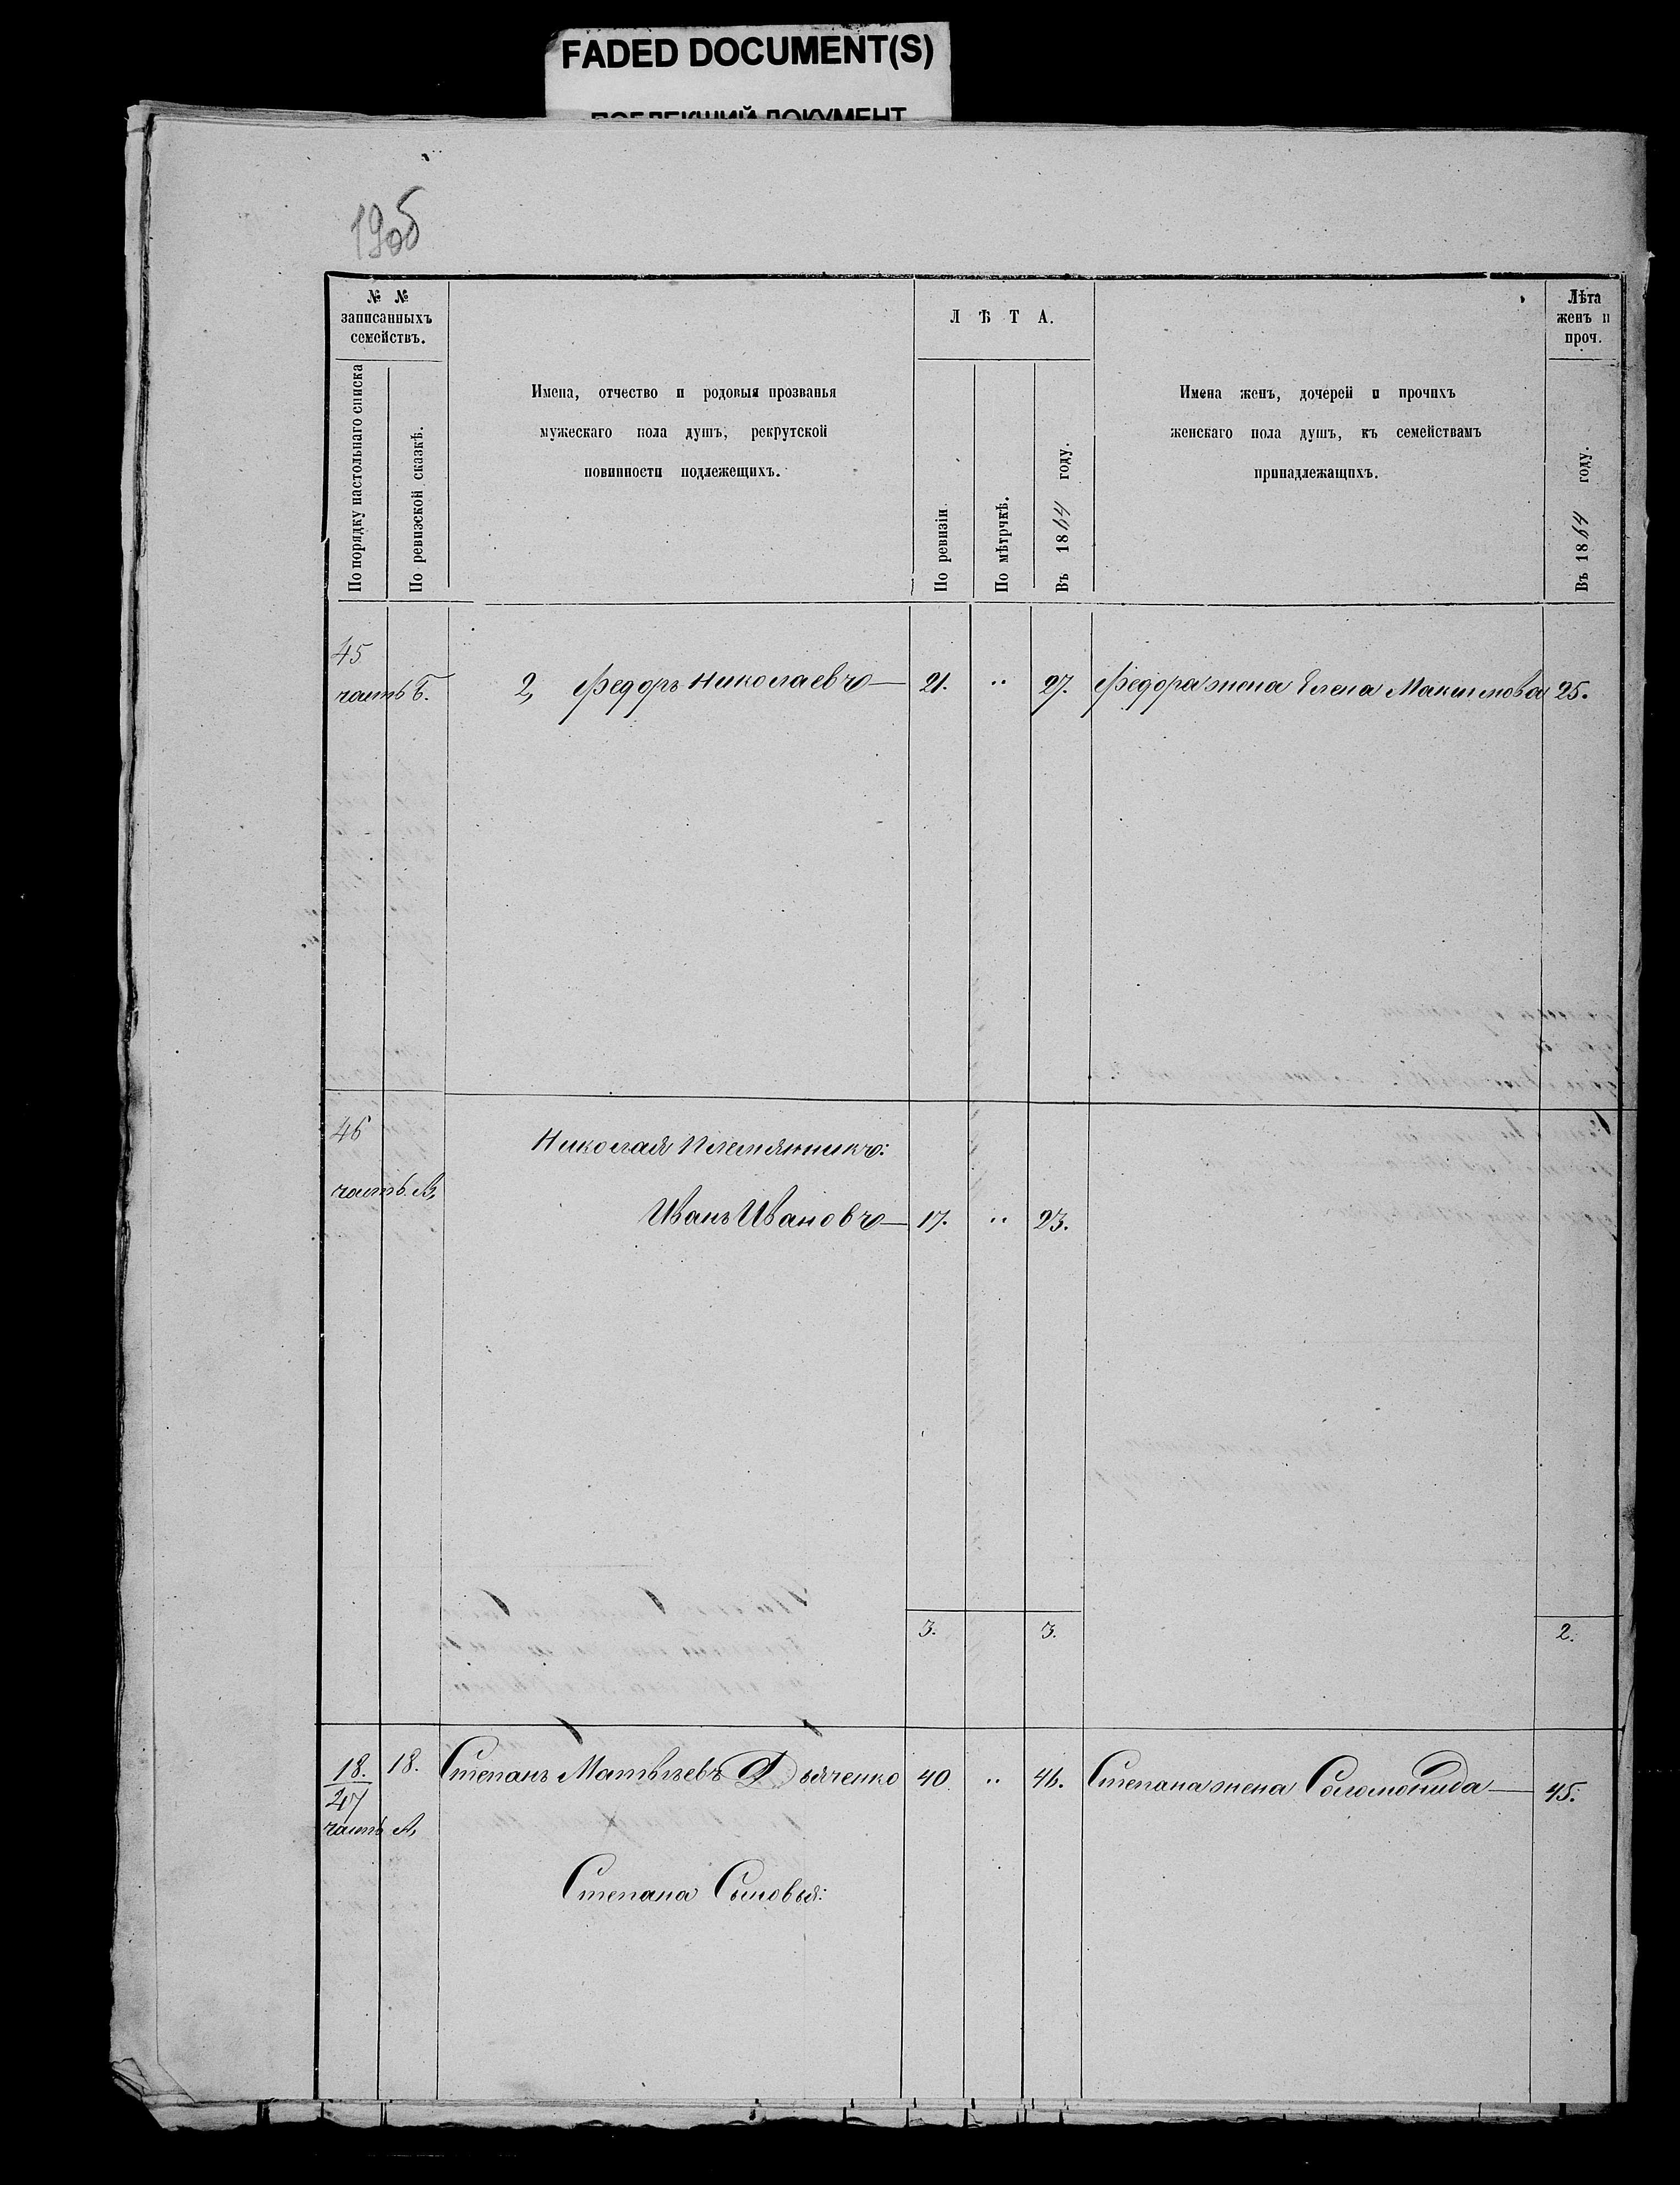 FADED DOCUMENT(S)
ПОБЛЕКШИЙ ДОКУМЕНТ
19об
№ №
записанныхъ
семействъ.
По порядку настольнаго списка
По ревизской сказкѣ.
Имена, отчество и родовыя прозванья
мужескаго пола душъ, рекрутской
повинности подлежещихъ.
Л Ѣ Т А.
По ревизіи
По мѣтрчкѣ.
Въ 1864 году.
Имена женъ, дочерей и прочихъ
женскаго пола душъ, къ семействамъ
принадлежащихъ.
Лѣта
женъ и
проч.
Въ 1864 году.
45
часть Б. 2, Федоръ Николаевъ — 21. " 27. Федора жена Елена Максимова 25.
46
Николая Племянникъ:
часть В,
Иванъ Ивановъ — 17. " 23.
3. 3. 2.
18. 18. Степанъ Матвѣевъ Дьяченко 40 " 46. Степана жена Соломонида — 45.
47
часть А,
Степана Сыновья: